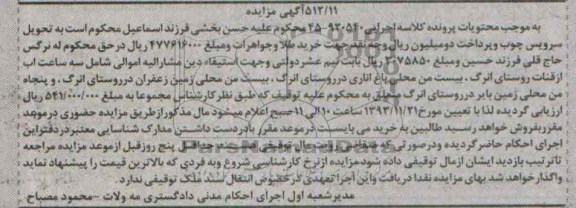 ۵۱۳/۱۱آگهی مزایده
به موجب محتویات پرونده کلاسه اجرایی ۹۳۰۵۴۰-۴۵ محکوم علیه حسن بخشی فرزند اسماعیل محکوم است به تحویل
سرویس چوب و پرداخت دومیلیون ریال وجه نقد جهت خرید طلا و جواهرات ومبلغ ۴۷۷۶۱۶۰۰۰ ریال در حق محکوم له نرگس
حاج قلی فرزند حسین ومبلغ ریال بابت نیم عشر دولتی وجهت استیفاء دین مشارالیه اموالی شامل سه ساعت اب
ازقنات روستای انرگ ، بیست من محلی باغ اناری درروستای انرگ ، بیست من محلی زمین زعفران درروستای انرگ ، و پنجاه
من محلی زمین بایر درروستای انرگ متعلق به محکوم علیه توقیف که طبق نظر کارشناس مجموعا به مبلغ ۵۴۱/۰۰۰/۰۰۰ ریال
ارزیابی گردیده لذا با تعیین مورخ ۱۳۹۳/۱۱/۲۱ ساعت ۱۰ الی ۱۱ صبح اعلام میشود مال مذکور ازطریق مزایده حضوری در موعد
مقرر بفروش خواهد رسید طالبین به خرید می بایست در موعد مقرر با در دست داشتن مدارک شناسایی معتبر دردفتراین
اجرای احکام حاضر گردیده ودرصورتی که متقاضی مال توقیفی باشند حداقل پنج روزقبل از موعد مزایده مراجعه
تاترتیب بازدید ایشان ازمال توقیفی داده شود مزایده ازنرخ کارشناسی شروع وبه فردی که بالاترین قیمت را پیشنهاد نماید
واگذار خواهد شد بهای مزایده نقدا دریافت واین اجرا تعهدی درخصوص انتقال سند ملک توقیفی ندارد.
مدیرشعبه اول اجرای احکام مدنی دادگستری مه ولات -محمود مصباح